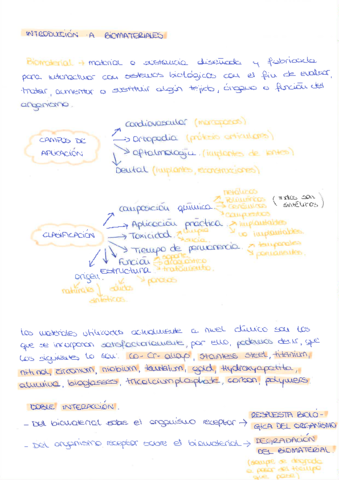 INTRODUCCIÓN A BIOMATERIALES
Biomaterial → material o sustancia diseñada y fabricada
para interactuar con sistemas biológicos con el fin de evaluar,
tratar, aumentar o sustituir algún tejido, órgano o función del
organismo.
CAMPOS DE
APLICACIÓN
cardiovascular (marcapasos)
Ortopedia (prótesis articulares)
Oftalmología (implantes de lentes)
Dental (implantes, )
CLASIFICACIÓN
composición química
metálicos
poliméricos
cerámicos
compuestos
(todos son sintéticos)
Aplicación práctica
implantables
no implantables
Toxicidad
Tiempo de permanencia
temporales
permanentes
Función
soporte
diagnóstico
tratamiento
estructura
sólidos
porosos
origen
naturales
sintéticos
Los materiales utilizados actualmente a nivel clínico son los
que se incorporan satisfactoriamente, por ello, podemos decir, que
los siguientes lo son: Co-Cr-alloys, stainless steel, titanium,
nitinol, zirconium, niobium, tantalum, gold, hydroxyapatite,
alumina, bioglasses, tricalcium phosphate, carbon, polymers
DOBLE INTERACCIÓN:
- Del biomaterial sobre el organismo receptor → RESPUESTA BIOLÓ-
GICA DEL ORGANISMO
- Del organismo receptor sobre el biomaterial → DEGRADACIÓN
DEL BIOMATERIAL
(siempre se degrada
a pesar del tiempo
que pase)